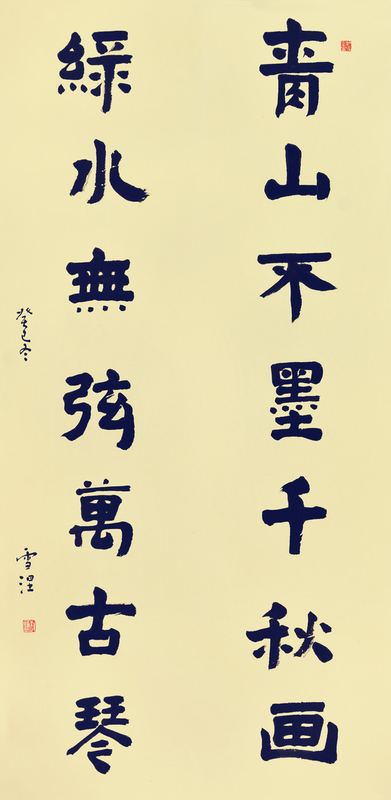 青山不墨千秋画
綠水無弦萬古琴
癸巳冬
雪涅